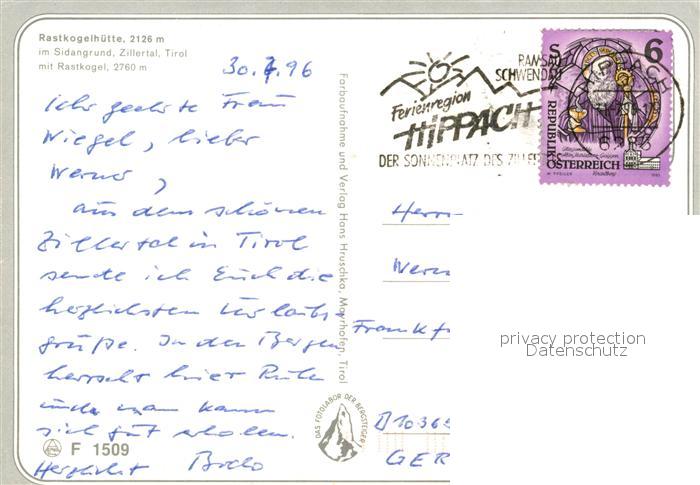 Rastkogelhütte, 2126 m
im Sidangrund, Zillertal, Tirol
mit Rastkogel, 2760 m
30.7.96
Ihr geehrte Frau
Wiegel, lieber
Werner,
aus dem schönen
Zillertal in Tirol
sende ich Euch die
herzlichsten Urlaubs-
grüße. In den Bergen
herrscht hier Ruhe
und man kann
sich gut erholen.
F 1509
Herzlichst Bodo
Farbaufnahme und Verlag Hans Hruschka, Mayrhofen, Tirol
DAS FOTOLABOR DER BERGSTEIGER!
RAMSAU
SCHWENDAU
Ferienregion
HIPPACH
DER SONNENPLATZ DES ZILLER
HIPPACH
6283
S 6
REPUBLIK
ÖSTERREICH
Herrn
Wern
Frankf
D 1036
GER
privacy protection
Datenschutz